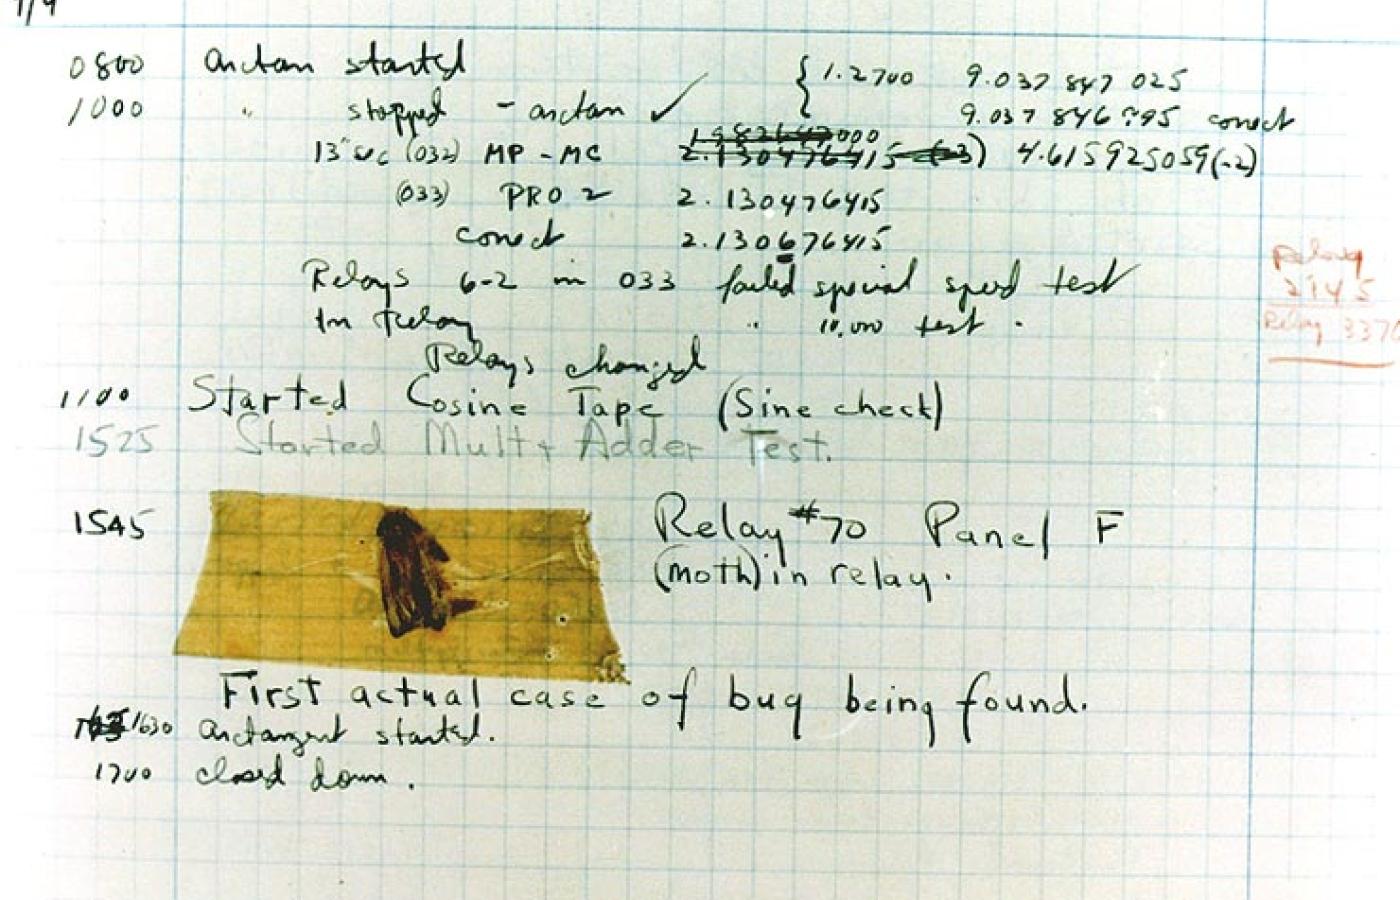 9/9
0800 arctan started { 1.2700 9.037 847 025
1000 " stopped - arctan ✓ 9.037 846 995 correct
13" sec (032) MP - MC 2.130476415 (-3) 4.615925059(-2)
(033) PRO 2 2.130476415
correct 2.130676415
Relays 6-2 in 033 failed special speed test
In Relay " 10.000 test .
Relays changed
Relay
2145
Relay 3370
1100 Started Cosine Tape (Sine check)
1525 Started Mult + Adder Test.
1545 Relay #70 Panel F
(moth) in relay.
First actual case of bug being found.
1630 arctangent started.
1700 closed down.